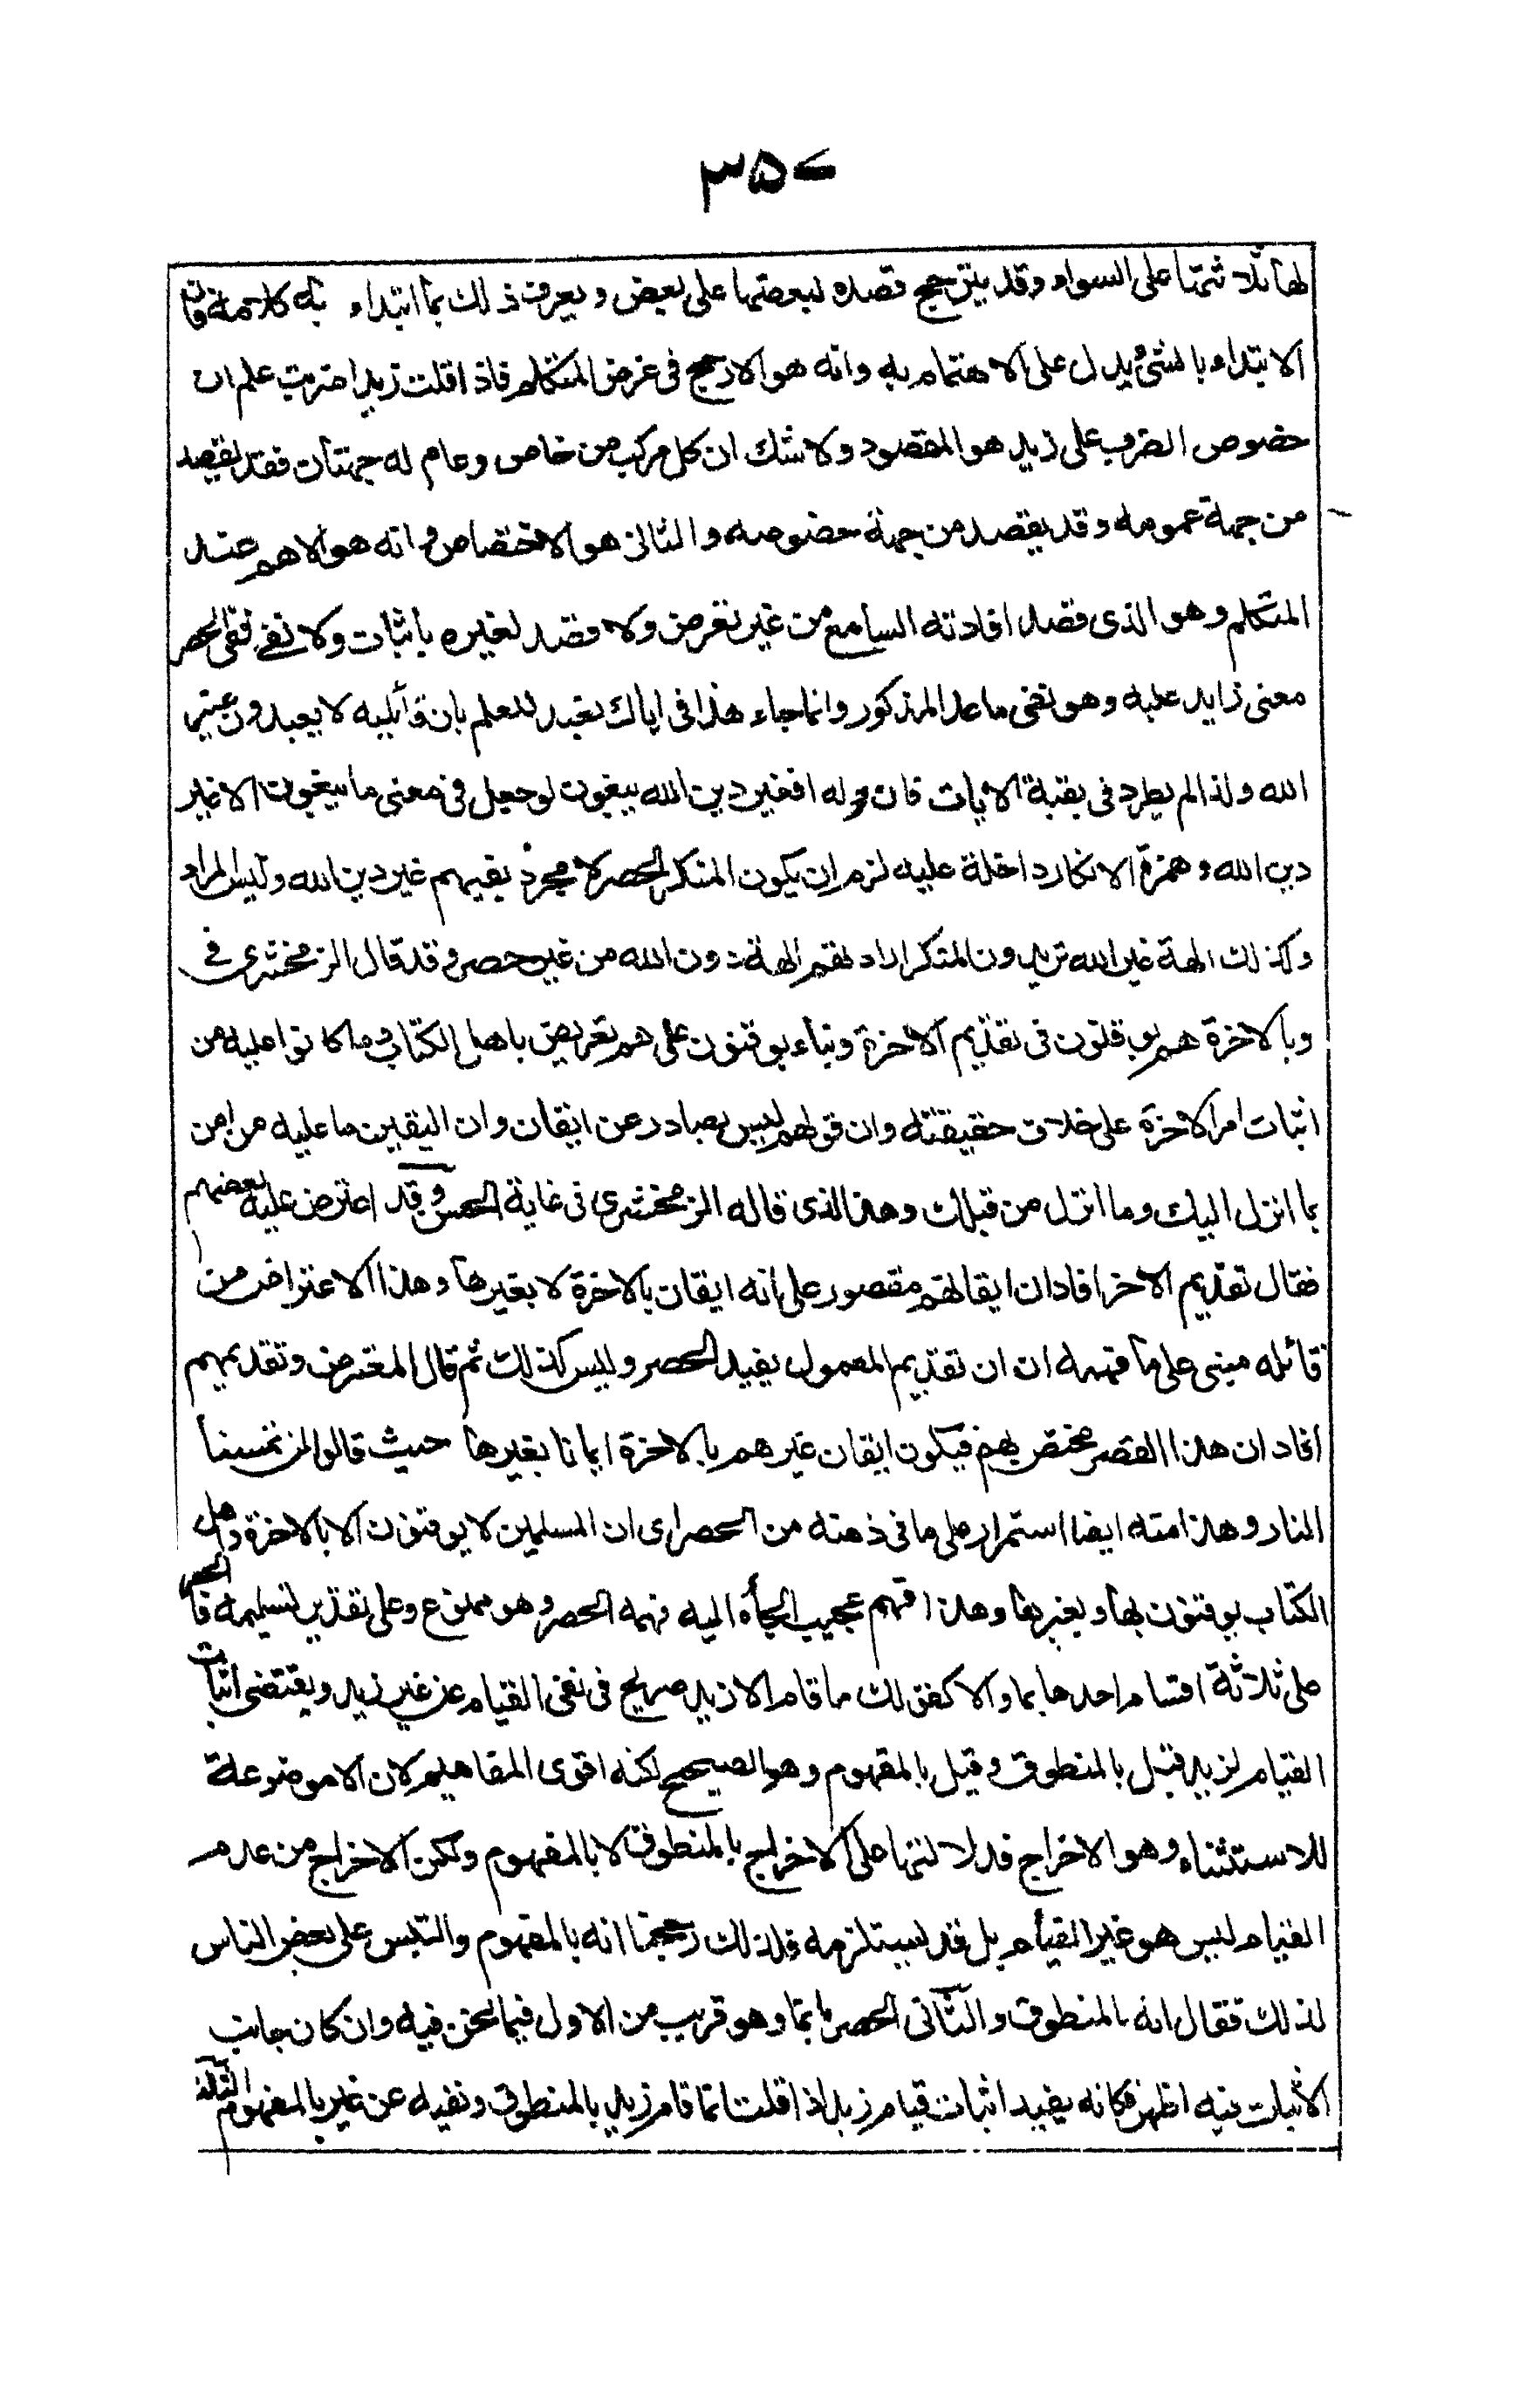 ۳۵۰
لها ثلاثتها على السواء وقد يترجح قصده لبعضها على بعض ويعرف ذلك بما ابتداء به كلامه فان
الابتداء بالشئ يدل على الاهتمام به وانه هو الارجح فى غرض المتكلم فاذا قلت زيدا ضربت علم ان
خصوص الضرب على زيد هو المقصود ولا شك ان كل مركب من خاص وعام له جهتان فقد يقصد
من جهة عمومه وقد يقصد من جهة خصوصه والثانى هو الاختصاص وانه هو الاهم عند
المتكلم وهو الذى قصد افادته السامع من غير تعرض ولا قصد لغيره باثبات ولا نفى ففى الحصر
معنى زايد عليه وهو نفى ما عدا المذكور وانما جاء هذا فى اياك نعبد للعلم بان قائليه لا يعبدون غير
الله ولذا لم يطرد فى بقية الايات فان قوله افغير دين الله يبغون لو جعل فى معنى ما يبغون الا غير
دين الله وهمزة الانكار داخلة عليه لزم ان يكون المنكر الحصر لا مجرد بغيهم غير دين الله وليس المراد
وكذلك الهة غير الله تريدون المنكر ارادتهم الهة دون الله من غير حصر وقد قال الزمخشرى فى
وبالاخرة هم يوقنون فى تقديم الاخرة وبناء يوقنون على هم تعريض باهل الكتاب وما كانوا عليه من
اثبات امر الاخرة على خلاف حقيقته وان قولهم ليس بصادر عن ايقان وان اليقين ما عليه من امن
بما انزل اليك وما انزل من قبلك وهذا الذى قاله الزمخشرى فى غاية الحسن وقد اعترض عليه بعضهم
فقال تقديم الاخر افاد ان ايقانهم مقصور على انه ايقان بالاخرة لا بغيرها وهذا الاعتراض من
قائله مبنى على ما فهمه ان ان تقديم المعمول يفيد الحصر وليس كذلك ثم قال المعترض وتقديمهم
افاد ان هذا القصر مختص بهم فيكون ايقان غيرهم بالاخرة ايمانا بغيرها حيث قالوا لن تمسنا
النار وهذا منه ايضا استمرار على ما فى ذهنه من الحصر اى ان المسلمين لا يوقنون الا بالاخرة واهل
الكتاب يوقنون بها وبغيرها وهذا فهم عجيب الجأه اليه فهمه الحصر وهو ممنوع وعلى تقدير تسليمه فالحصر
على ثلاثة اقسام احدها بما والا كقولك ما قام الا زيد صريح فى نفى القيام عن غير زيد ويقتضى اثبات
القيام لزيد قيل بالمنطوق وقيل بالمفهوم وهو الصحيح لكنه اقوى المفاهيم لان الا موضوعة
للاستثناء وهو الاخراج فدلالتها على الاخراج بالمنطوق لا بالمفهوم ولكن الاخراج من عدم
القيام ليس هو غير القيام بل قد يستلزمه فلذلك رجحنا انه بالمفهوم والتبس على بعض الناس
لذلك فقال انه بالمنطوق والثانى الحصر بانما وهو قريب من الاول فيما نحن فيه وان كان جانب
الاثبات فيه اظهر فكانه يفيد اثبات قيام زيد اذا قلت انما قام زيد بالمنطوق ونفيه عن غير بالمفهوم الثالث